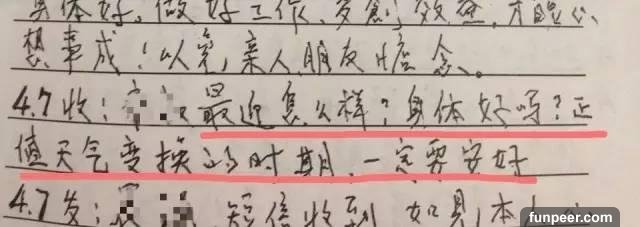 身体好,做好工作,多创效益,才能心
想事成!以宽亲人朋友惦念。
4.7收: 最近怎么样?身体好吗?正
值天气变换的时期,一定要安好
4.7发: 短信收到 如见本人
funpeer.com